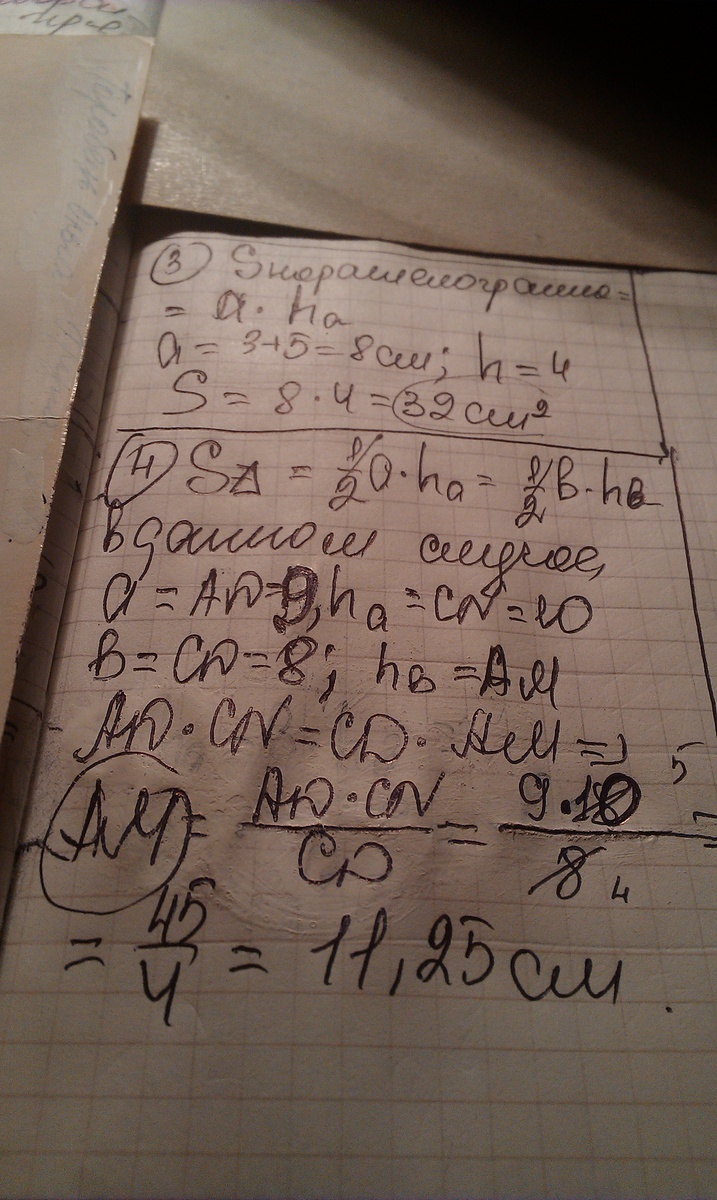 ③ Sпараллелограмма =
= a · hₐ
a = 3+5 = 8 см; h = 4
S = 8 · 4 = 32 см²
④ S△ = 1/2 a · hₐ = 1/2 b · h_b
В данном случае,
a = AD = 9, hₐ = CN = 10
b = CD = 8; h_b = AM
AD · CN = CD · AM =>
AM = AD · CN / CD = 9 · 10 5 / 8 4 =
= 45/4 = 11,25 см.